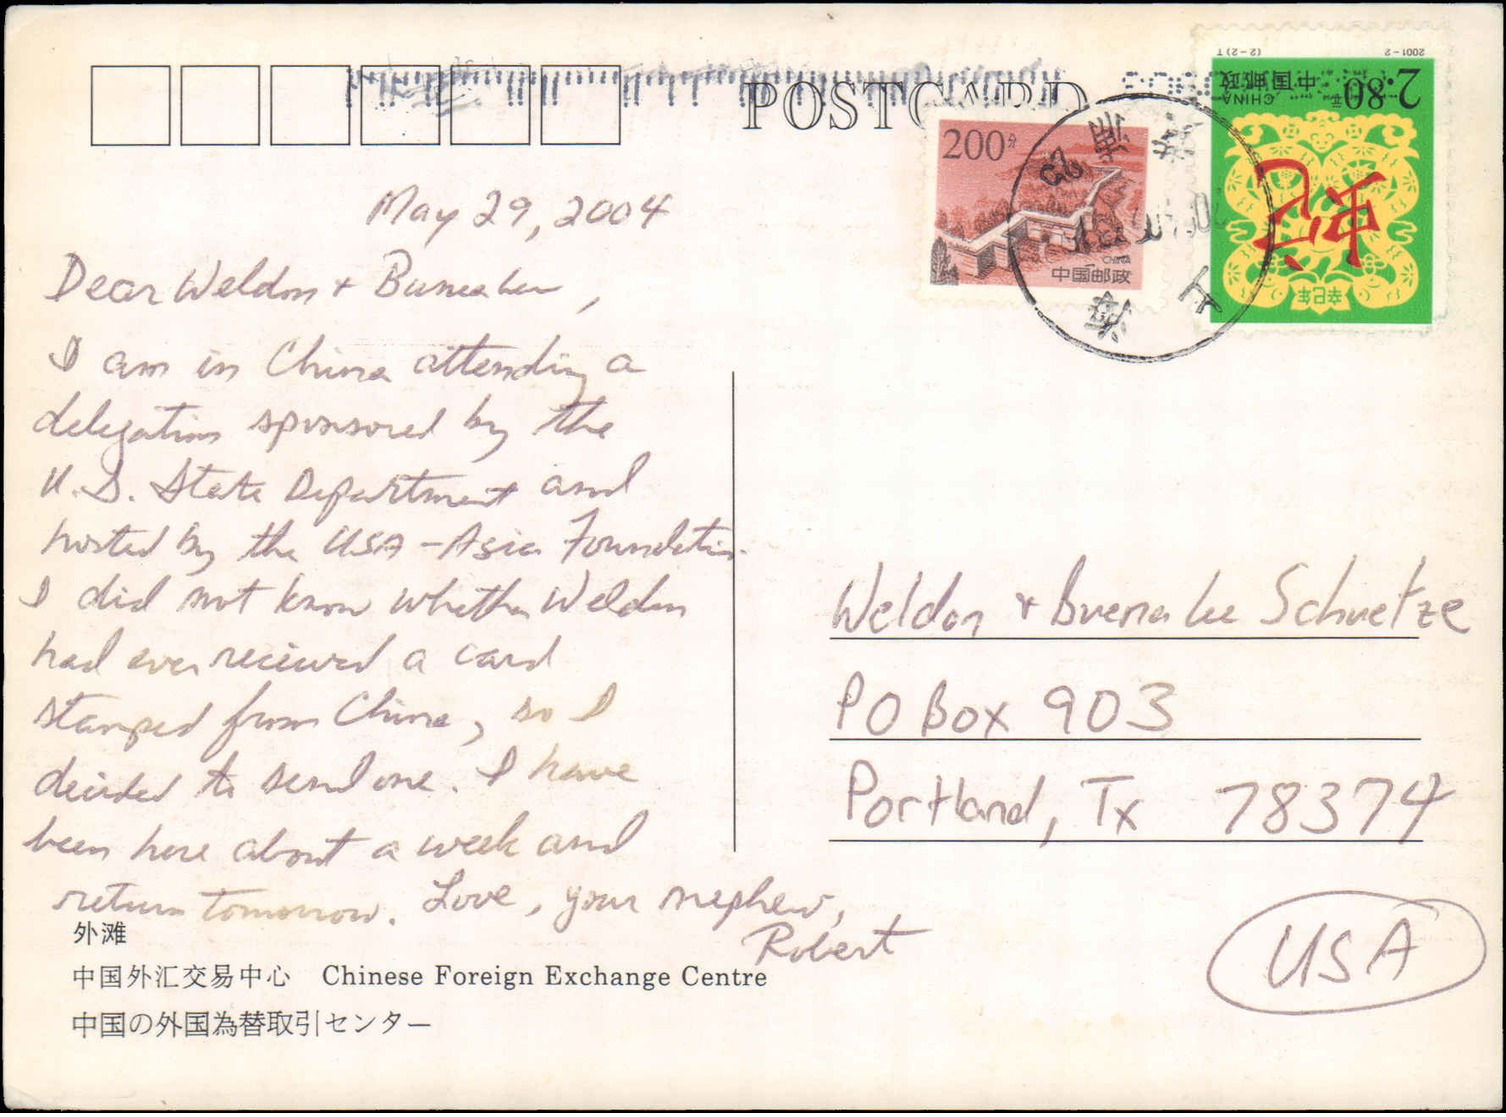 POSTCARD
200分
CHINA
中国邮政
2001-2
(2-2)T
2.80元
中国邮政
CHINA
辛巳年
上
May 29, 2004
Dear Weldon + Buena Lee,
I am in China attending a
delegation sponsored by the
U.S. State Department and
hosted by the USA-Asia Foundation.
I did not know whether Weldon
had ever recieved a card
stamped from China, so I
decided to send one. I have
been here about a week and
return tomorrow. Love, your nephew,
Robert
Weldon + Buena Lee Schuetze
PO Box 903
Portland, Tx 78374
USA
外滩
中国外汇交易中心 Chinese Foreign Exchange Centre
中国の外国為替取引センター